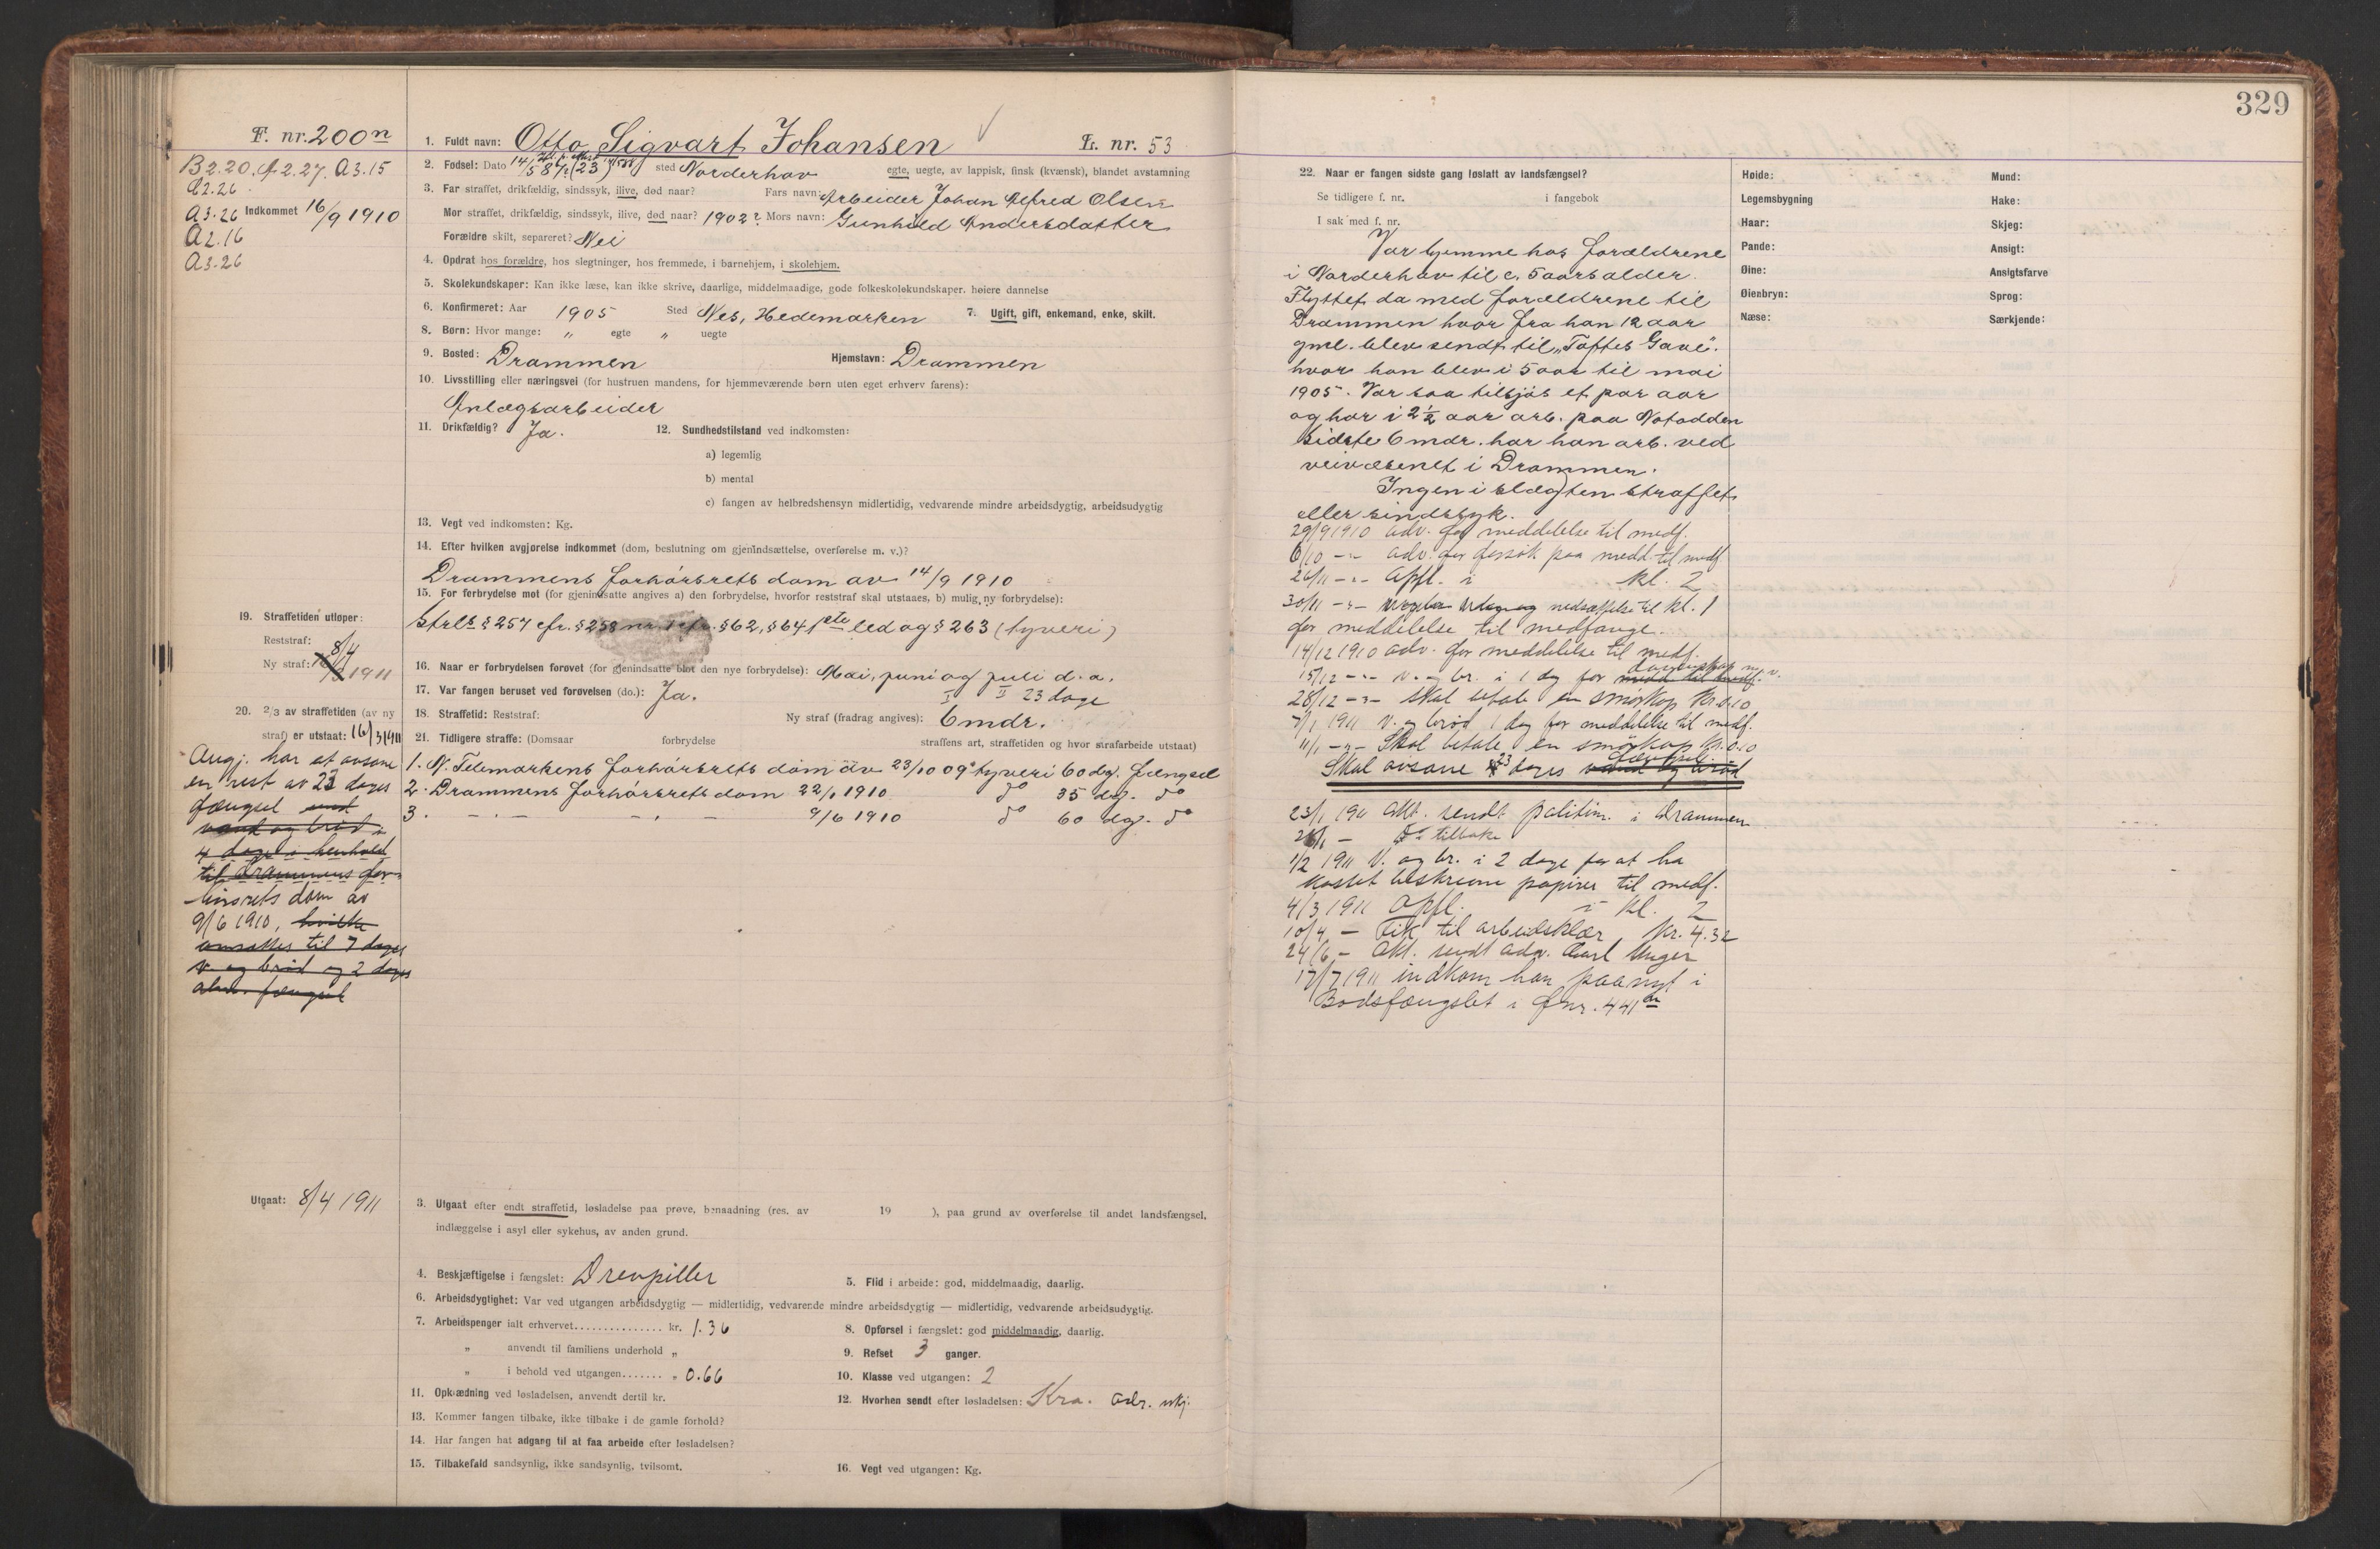 329
F. nr. 200n
1. Fuldt navn: Otto Sigvart Johansen
L. nr. 53
B2.20. A2.27. A3.15
A3.26 Indkommet 16/9 1910
A2.16
A3.26
2. Fødsel: Dato 14/5 87 (23) sted Norderhov egte, uegte, av lappisk, finsk (kvænsk), blandet avstamning
3. Far straffet, drikfældig, sindssyk, ilive, død naar? Fars navn: Arbeider Johan Alfred Olsen
Mor straffet, drikfældig, sindssyk, ilive, død naar? 1902? Mors navn: Gunhild Andersdatter
Forældre skilt, separeret? Nei
4. Opdrat hos forældre, hos slegtninger, hos fremmede, i barnehjem, i skolehjem.
5. Skolekundskaper: Kan ikke læse, kan ikke skrive, daarlige, middelmaadige, gode folkeskolekundskaper. høiere dannelse
6. Konfirmeret: Aar 1905 Sted Nes, Hedemarken 7. Ugift, gift, enkemand, enke, skilt.
8. Børn: Hvor mange: „ egte „ uegte
9. Bosted: Drammen Hjemstavn: Drammen
10. Livsstilling eller næringsvei (for hustruen mandens, for hjemmeværende børn uten eget erhverv farens):
Anlægsarbeider
11. Drikfældig? Ja. 12. Sundhedstilstand ved indkomsten:
a) legemlig
b) mental
c) fangen av helbredshensyn midlertidig, vedvarende mindre arbeidsdygtig, arbeidsudygtig
13. Vegt ved indkomsten: Kg.
14. Efter hvilken avgjørelse indkommet (dom, beslutning om gjenindsættelse, overførelse m. v.)?
Drammens forhørsrets dom av 14/9 1910
15. For forbrydelse mot (for gjenindsatte angives a) den forbrydelse, hvorfor reststraf skal utstaaes, b) mulig ny forbrydelse):
Strl's § 257 cfr. § 258 nr. 1 cfr. § 62, § 64 1ste led og § 263 (tyveri)
16. Naar er forbrydelsen forøvet (for gjenindsatte blot den nye forbrydelse): Mai, juni og juli d. a.
17. Var fangen beruset ved forøvelsen (do.): Ja. I II 23 dage
18. Straffetid: Reststraf: Ny straf (fradrag angives): 6 mdr.
19. Straffetiden utløper:
Reststraf: 8/4
Ny straf: 1911
20. 2/3 av straffetiden (av ny
straf) er utstaat: 16/1 1911
21. Tidligere straffe: (Domsaar forbrydelse straffens art, straffetiden og hvor strafarbeide utstaat)
1. N. Telemarkens forhørsrets dom av 23/10 09 tyveri 60 dg. fængsel
2. Drammens forhørsrets dom 22/1 1910 do 35 dg. do
3. – „ – – „ – 9/6 1910 do 60 dg. do
Angj. har at avsone
en rest av 23 dages
fængsel
vand og brød i
4 dage i henhold
til Drammens for-
hørsrets dom av
9/6 1910, hvilke
omsættes til 7 dages
v. og brød og 2 dages
alm. fængsel
Utgaat: 8/4 1911
3. Utgaat efter endt straffetid, løsladelse paa prøve, benaadning (res. av 19 ), paa grund av overførelse til andet landsfængsel,
indlæggelse i asyl eller sykehus, av anden grund.
4. Beskjæftigelse i fængslet: Drevpiller 5. Flid i arbeide: god, middelmaadig, daarlig.
6. Arbeidsdygtighet: Var ved utgangen arbeidsdygtig — midlertidig, vedvarende mindre arbeidsdygtig — midlertidig, vedvarende arbeidsudygtig.
7. Arbeidspenger ialt erhvervet............... kr. 1.36 8. Opførsel i fængslet: god middelmaadig, daarlig.
„ anvendt til familiens underhold „ 9. Refset 3 ganger.
„ i behold ved utgangen....... „ 0.66 10. Klasse ved utgangen: 2
11. Opklædning ved løsladelsen, anvendt dertil kr. 12. Hvorhen sendt efter løsladelsen: Kra. adr. ukj.
13. Kommer fangen tilbake, ikke tilbake i de gamle forhold?
14. Har fangen hat adgang til at faa arbeide efter løsladelsen?
15. Tilbakefald sandsynlig, ikke sandsynlig, tvilsomt. 16. Vegt ved utgangen: Kg.
22. Naar er fangen sidste gang løslatt av landsfængsel?
Se tidligere f. nr. i fangebok
I sak med f. nr.
Var hjemme hos forældrene
i Norderhov til c. 5 aars alder.
Flyttet da med forældrene til
Drammen hvor fra han 12 aar
gml. blev sendt til „Toftes Gave".
hvor han blev i 5 aar til mai
1905. Var saa tilsjøs et par aar
og har i 2 1/2 aar arb. paa Notodden
Sidste 6 mdr. har han arb. ved
veivæsenet i Drammen.
Ingen i slægten straffet
eller sindssyk.
29/9 1910 adv. for meddelelse til medf.
6/10 –„– adv. for forsøk paa medd. til medf
26/11 –„– Opfl. i kl. 2
30/11 –„– nedsættelse til kl. 1
for meddelelse til medfange.
14/12 1910 adv. for meddelelse til medf.
15/12 –„– v. og br. i 1 dg for medd. til medf.
28/12 –„– skal betale en smørkop kr. 0.10
7/1 1911 V. og brød 1 dag for meddelelse til medf.
11/1 –„– Skal betale en smørkop kr. 0.10
Skal avsone 23 dages fængsel vand og brød
23/1 1911 Akt. sendt politim. i Drammen
26/1 – do tilbake
1/2 1911 V. og br. i 2 dage for at ha
kastet beskrevne papirer til medf.
4/3 1911 Opfl. i kl. 2
10/4 – Fik til arbeidsklær kr. 4.32
24/6 – Akt. sendt adv. Carl Unger
17/7 1911 indkom han paanyt i
Bodsfængslet i fnr. 441
Høide:
Legemsbygning
Haar:
Pande:
Øine:
Øienbryn:
Næse:
Mund:
Hake:
Skjeg:
Ansigt:
Ansigtsfarve
Sprog:
Særkjende: